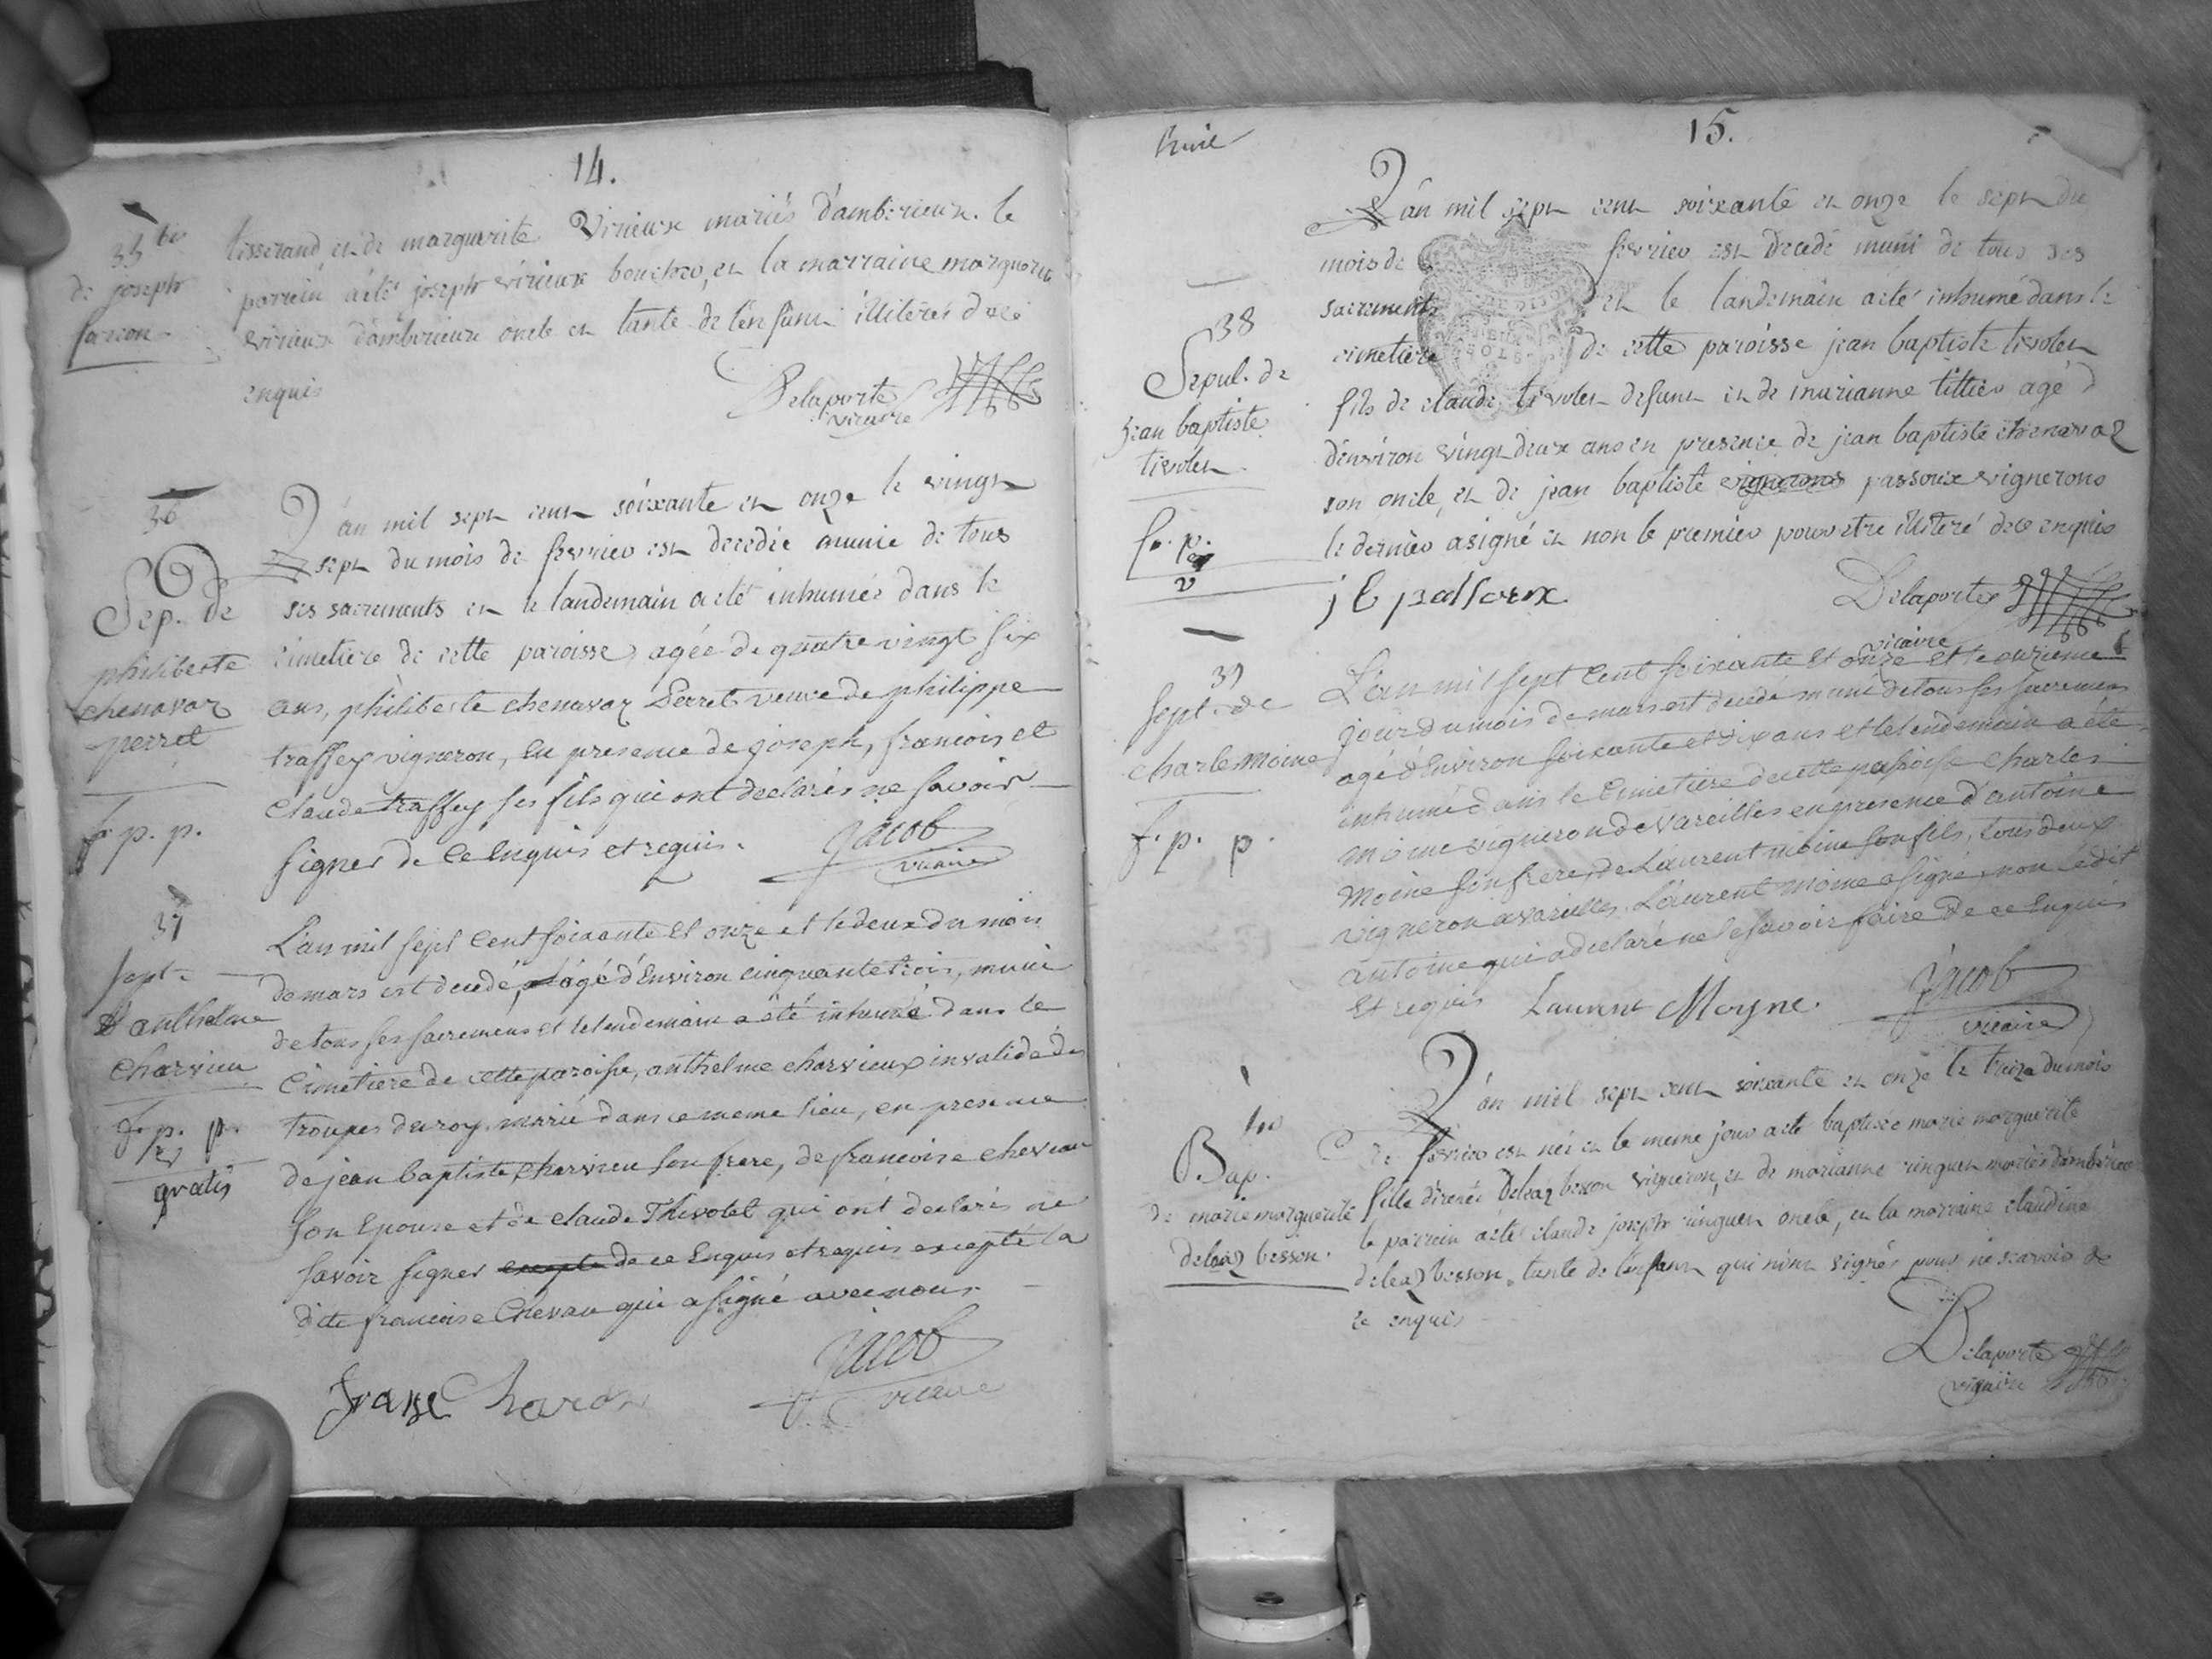 14.
35 bis
de joseph
tisserand et de marguerite Virieux mariés d'amberieux. le
parrein a été joseph virieux boucher, et la marraine marguerite
virieux d'amberieux oncle et tante de l'enfant illiterés de ce
enquis
Delaporte
vicaire
36
Sep. de
philiberte
chenavaz
perret
f. p. p.
L'an mil sept cent soixante et onze le vingt
sept du mois de fevrier est decedée munie de tous
ses sacrements et le landemain a été inhumée dans le
cimetiere de cette paroisse agée de quatre vingt six
ans, philiberte chenavaz Perret veuve de philippe
traffey vigneron, en presence de joseph, francois et
claude traffey ses fils qui ont declarés ne savoir
signer de ce enquis et requis.
Jacob
vicaire
37
sept.
d'anthelme
charvieu
f. p. p.
gratis
L'an mil sept cent soixante et onze et le deux du mois
de mars est decedé, agé d'environ cinquante trois, muni
de tous ses sacremens et le lendemain a été inhumé dans le
Cimetiere de cette paroisse, anthelme charvieux invalide des
troupes du roy marié dans ce meme lieu, en presence
de jean baptiste charvieu son frere, de francoise chevau
son epouse et de claude Thivolet qui ont declarés ne
savoir signer excepte de ce enquis et requis excepté la
dite francoise Chevau qui a signé avec nous
Jacob
vicaire
15.
38
Sepul. de
jean baptiste
tivolet
f. p.
L'an mil sept cent soixante et onze le sept du
mois de fevrier est decedé muni de tous ses
sacrements et le landemain a été inhumé dans le
cimetiere de cette paroisse jean baptiste tivolet
fils de claude tivolet defunt et de marianne tillier agé d
d'environ vingt deux ans en presence de jean baptiste chenavaz
son oncle, et de jean baptiste vignerons passoux vignerons
le dernier a signé et non le premier pour etre illiteré de ce enquis
j b passoux
Delaporte
vicaire
39
sept. de
charle Moine
f. p. p.
L'an mil sept cent soixante et onze et le onzieme
jour du mois de mars est decedé muni de tous ses sacremens
agé d'environ soixante et dix ans et le lendemain a été
inhumé dans le Cimetiere de cette paroisse charles
moine vigneron de Vareilles en presence d'antoine
Moine son frere, de Laurent moine son fils, tous deux
vigneron a vareilles, Laurent moine a signé, non le dit
antoine qui a declaré ne le savoir faire de ce enquis
et requis
Laurent Moyne.
Jacob
vicaire
Bap.
de marie marguerite
deleaz besson.
L'an mil sept cent soixante et onze le treize du mois
de fevrier est née et le meme jour a été baptisée marie marguerite
fille d'irenée Deleaz besson vigneron, et de marianne ringuet mariés d'amberieux
le parrein a été claude joseph ringuet oncle, et la marraine claudine
deleaz besson tante de l'enfant qui n'ont signés pour ne scavoir de
ce enquis
Delaporte
vicaire